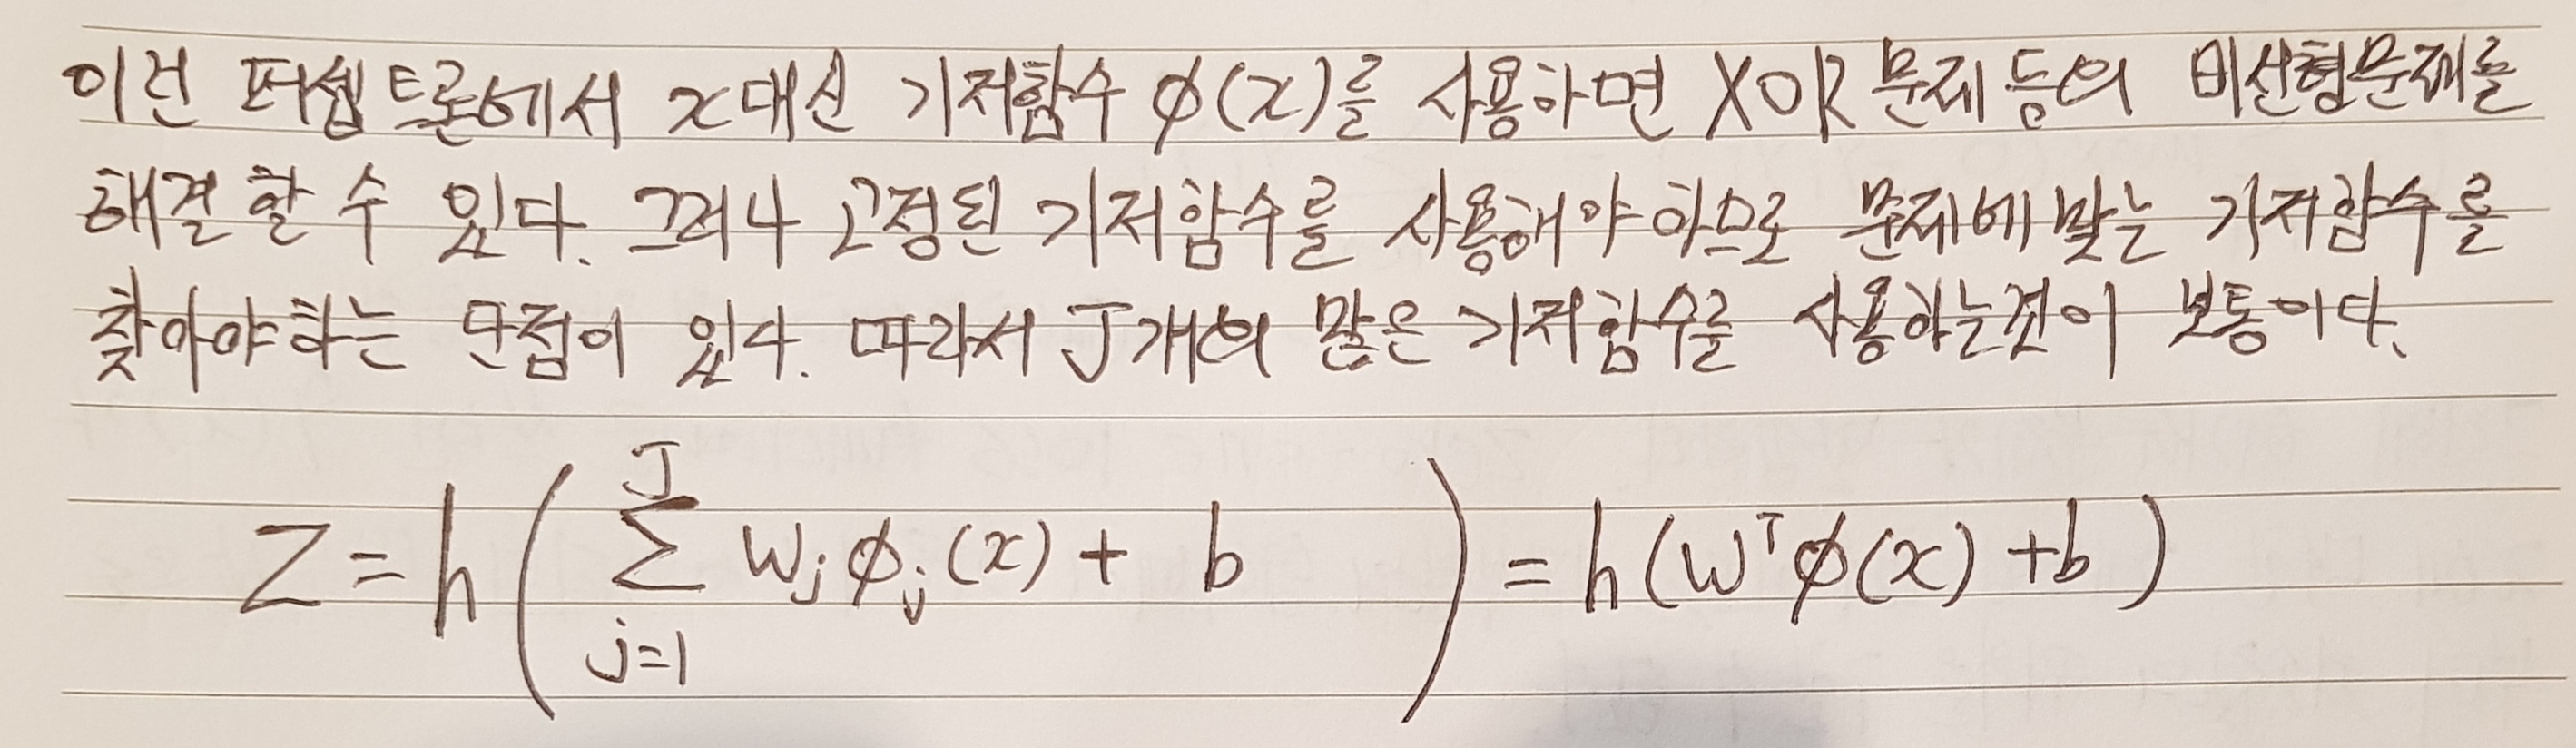 이런 퍼셉트론에서 x대신 기저함수 φ(x)를 사용하면 XOR 문제 등의 비선형문제를
해결할 수 있다. 그러나 고정된 기저함수를 사용해야 하므로 문제에 맞는 기저함수를
찾아야하는 단점이 있다. 따라서 J개의 많은 기저함수를 사용하는것이 보통이다.
z = h( Σ_{j=1}^{J} w_j φ_j(x) + b ) = h(w^T φ(x) + b)